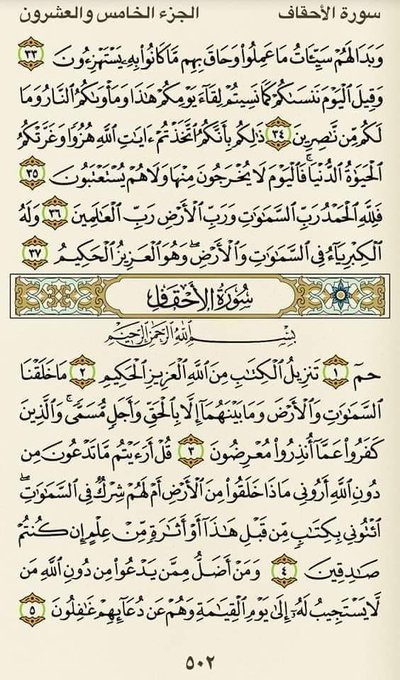 سورة الأحقاف
الجزء الخامس والعشرون
وَبَدَا لَهُمْ سَيِّـَٔاتُ مَا عَمِلُوا۟ وَحَاقَ بِهِم مَّا كَانُوا۟ بِهِۦ يَسْتَهْزِءُونَ ٣٣
وَقِيلَ ٱلْيَوْمَ نَنسَىٰكُمْ كَمَا نَسِيتُمْ لِقَآءَ يَوْمِكُمْ هَٰذَا وَمَأْوَىٰكُمُ ٱلنَّارُ وَمَا
لَكُم مِّن نَّٰصِرِينَ ٣٤ ذَٰلِكُم بِأَنَّكُمُ ٱتَّخَذْتُمْ ءَايَٰتِ ٱللَّهِ هُزُوًا وَغَرَّتْكُمُ
ٱلْحَيَوٰةُ ٱلدُّنْيَا ۚ فَٱلْيَوْمَ لَا يُخْرَجُونَ مِنْهَا وَلَا هُمْ يُسْتَعْتَبُونَ ٣٥
فَلِلَّهِ ٱلْحَمْدُ رَبِّ ٱلسَّمَٰوَٰتِ وَرَبِّ ٱلْأَرْضِ رَبِّ ٱلْعَٰلَمِينَ ٣٦ وَلَهُ
ٱلْكِبْرِيَآءُ فِى ٱلسَّمَٰوَٰتِ وَٱلْأَرْضِ ۖ وَهُوَ ٱلْعَزِيزُ ٱلْحَكِيمُ ٣٧
سُورَةُ الأَحْقَافِ
بِسْمِ ٱللَّهِ ٱلرَّحْمَٰنِ ٱلرَّحِيمِ
حمٓ ١ تَنزِيلُ ٱلْكِتَٰبِ مِنَ ٱللَّهِ ٱلْعَزِيزِ ٱلْحَكِيمِ ٢ مَا خَلَقْنَا
ٱلسَّمَٰوَٰتِ وَٱلْأَرْضَ وَمَا بَيْنَهُمَآ إِلَّا بِٱلْحَقِّ وَأَجَلٍ مُّسَمًّى ۚ وَٱلَّذِينَ
كَفَرُوا۟ عَمَّآ أُنذِرُوا۟ مُعْرِضُونَ ٣ قُلْ أَرَءَيْتُم مَّا تَدْعُونَ مِن
دُونِ ٱللَّهِ أَرُونِى مَاذَا خَلَقُوا۟ مِنَ ٱلْأَرْضِ أَمْ لَهُمْ شِرْكٌ فِى ٱلسَّمَٰوَٰتِ ۖ
ٱئْتُونِى بِكِتَٰبٍ مِّن قَبْلِ هَٰذَآ أَوْ أَثَٰرَةٍ مِّنْ عِلْمٍ إِن كُنتُمْ
صَٰدِقِينَ ٤ وَمَنْ أَضَلُّ مِمَّن يَدْعُوا۟ مِن دُونِ ٱللَّهِ مَن
لَّا يَسْتَجِيبُ لَهُۥٓ إِلَىٰ يَوْمِ ٱلْقِيَٰمَةِ وَهُمْ عَن دُعَآئِهِمْ غَٰفِلُونَ ٥
٥٠٢